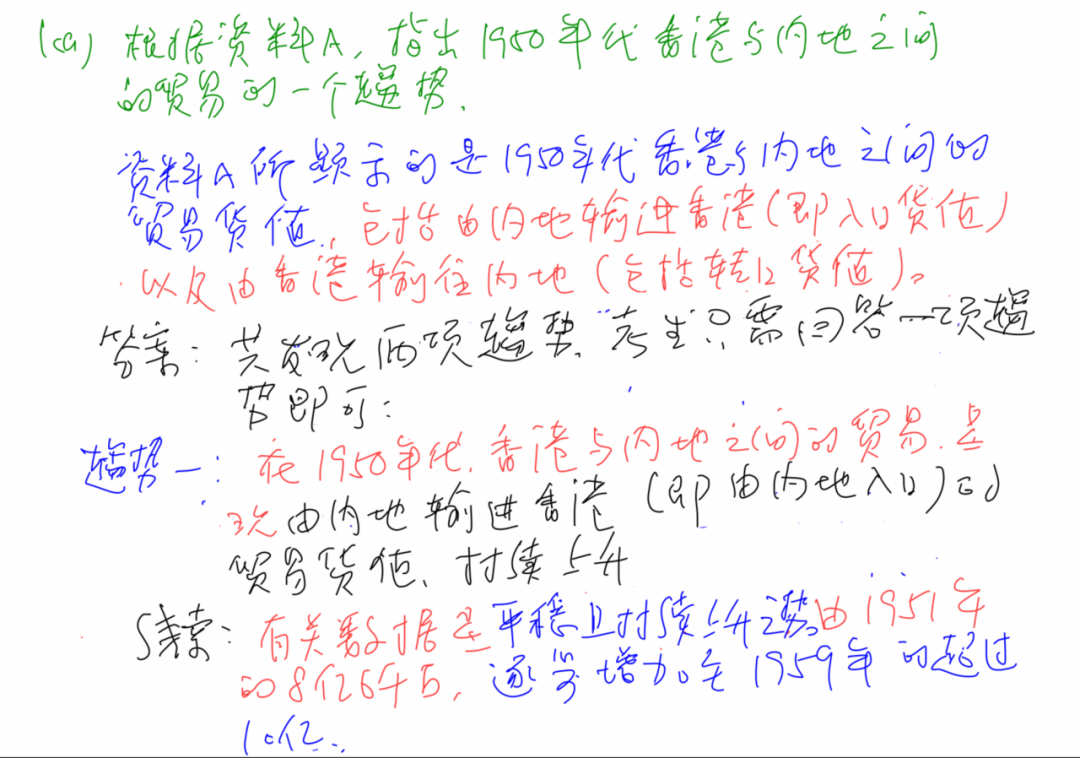 (a) 根据资料A，指出1950年代香港与内地之间
的贸易的一个趨势.
资料A所顯示的是1950年代香港与内地之间的
贸易货值，包括由内地输进香港(即入口货值)
以及由香港输往内地(包括转口货值)。
答案：共发现两项趨势，考生只需回答一项趨
势即可：
趨势一：在1950年代，香港与内地之间的贸易，呈
现由内地输进香港(即由内地入口)的
贸易货值，持续上升
线索：有关数据呈平稳且持续上升之势，由1951年
的8亿6千万，逐步增加至1959年的超过
10亿.